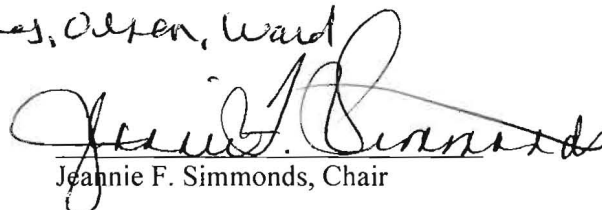 Olsen, Ward
Jeannie F. Simmonds
Jeannie F. Simmonds, Chair